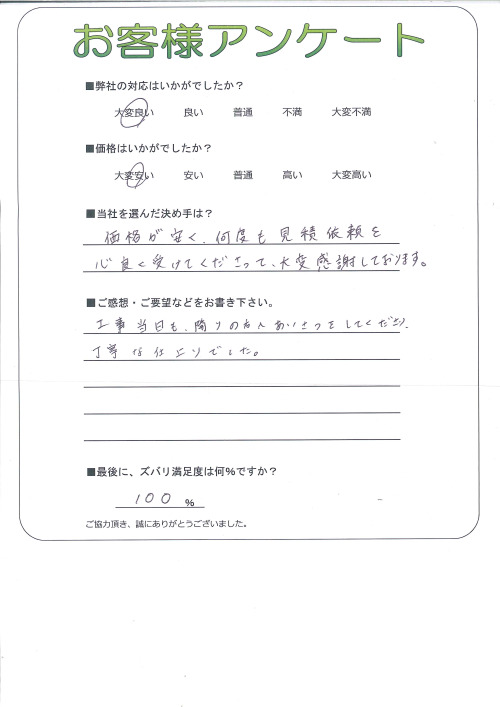 お客様アンケート
■弊社の対応はいかがでしたか？
大変良い 良い 普通 不満 大変不満
■価格はいかがでしたか？
大変安い 安い 普通 高い 大変高い
■当社を選んだ決め手は？
価格が安く、何度も見積依頼を
心良く受けてくださって、大変感謝しております。
■ご感想・ご要望などをお書き下さい。
工事当日も、隣りの方へあいさつをしてくださり、
丁寧な仕上りでした。
■最後に、ズバリ満足度は何％ですか？
100 ％
ご協力頂き、誠にありがとうございました。